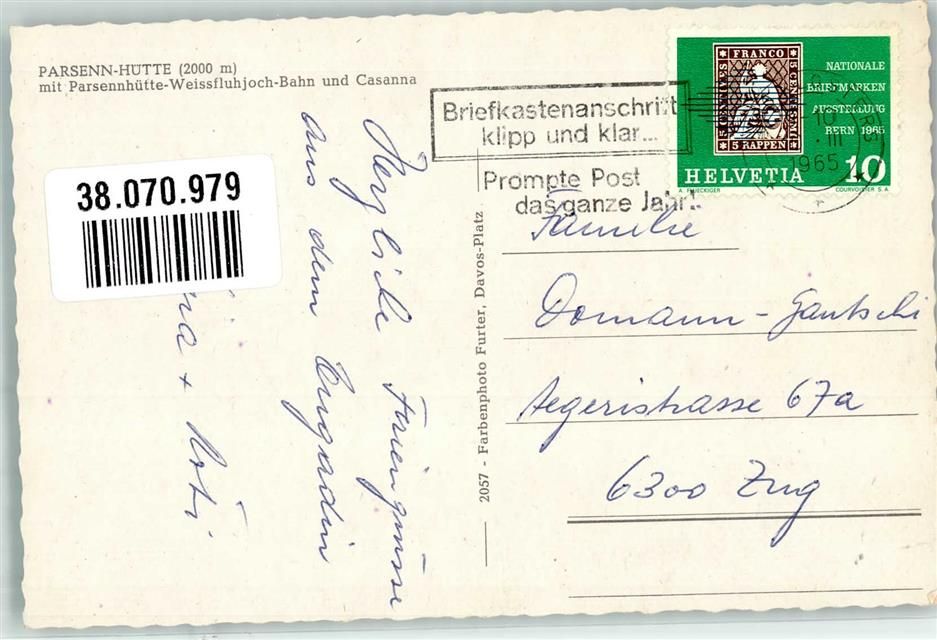 PARSENN-HÜTTE (2000 m)
mit Parsennhütte-Weissfluhjoch-Bahn und Casanna
38.070.979
Herzliche Feriengrüsse
aus dem Engadin
2057 - Farbenphoto Furter, Davos-Platz
Briefkastenanschrift
klipp und klar...
Prompte Post
das ganze Jahr!
FRANCO
5 CENTIMES
5 CENTESIMI
5 RAPPEN
NATIONALE
BRIEFMARKEN
AUSSTELLUNG
BERN 1965
HELVETIA
10
COURVOISIER S.A.
10
III
1965
Familie
Domann-Gautschi
Aegeristrasse 67a
6300 Zug